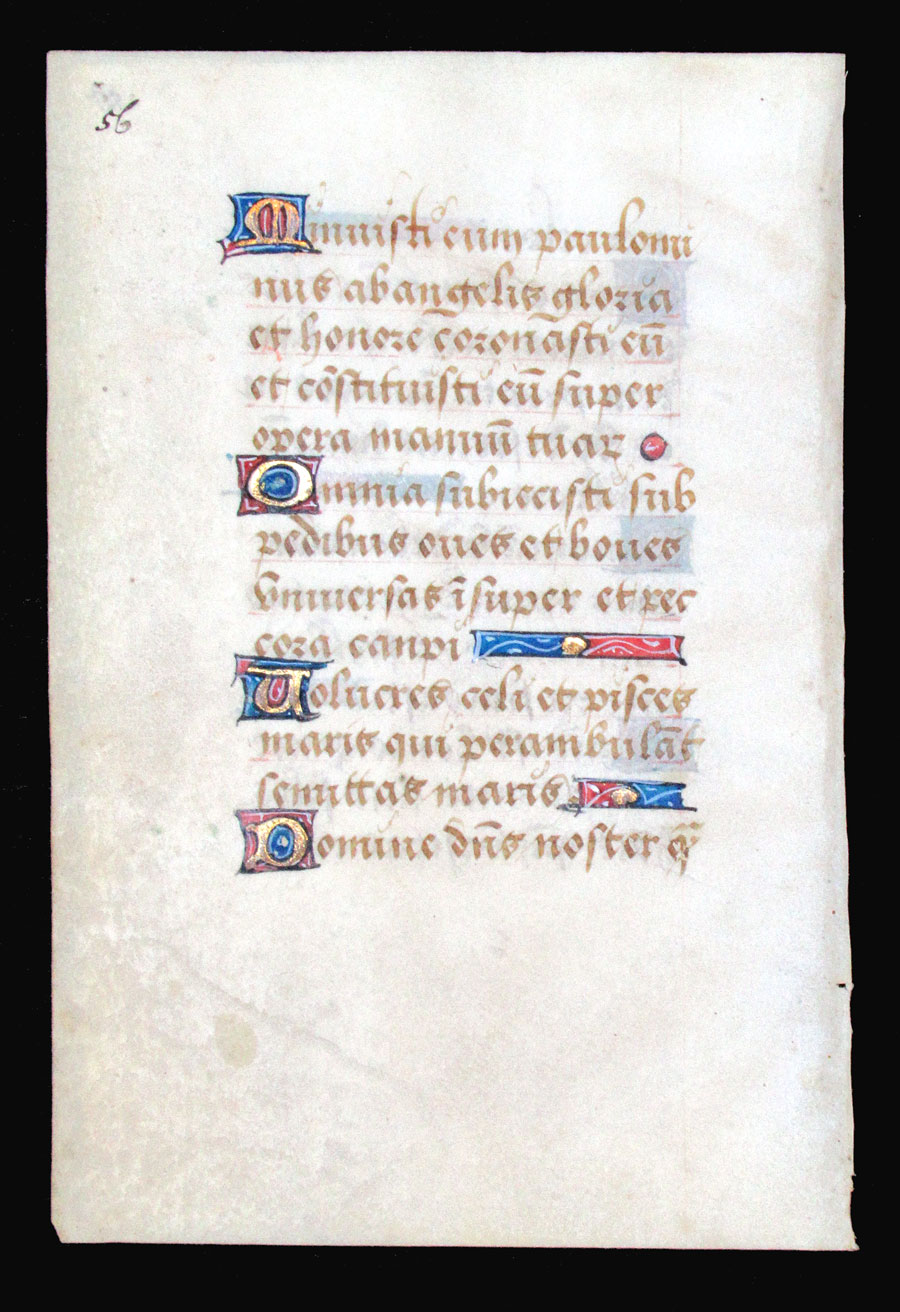 56
Minuisti eum paulomi
nus ab angelis gloria
et honore coronasti eū
et cōstituisti eū super
opera manuū tuar
Omnia subiecisti sub
pedibus oues et boues
vniuersas īsuper et pec
cora canpi
Uolucres celi et pisces
maris qui perambulāt
semittas maris
Domine dn̄s noster